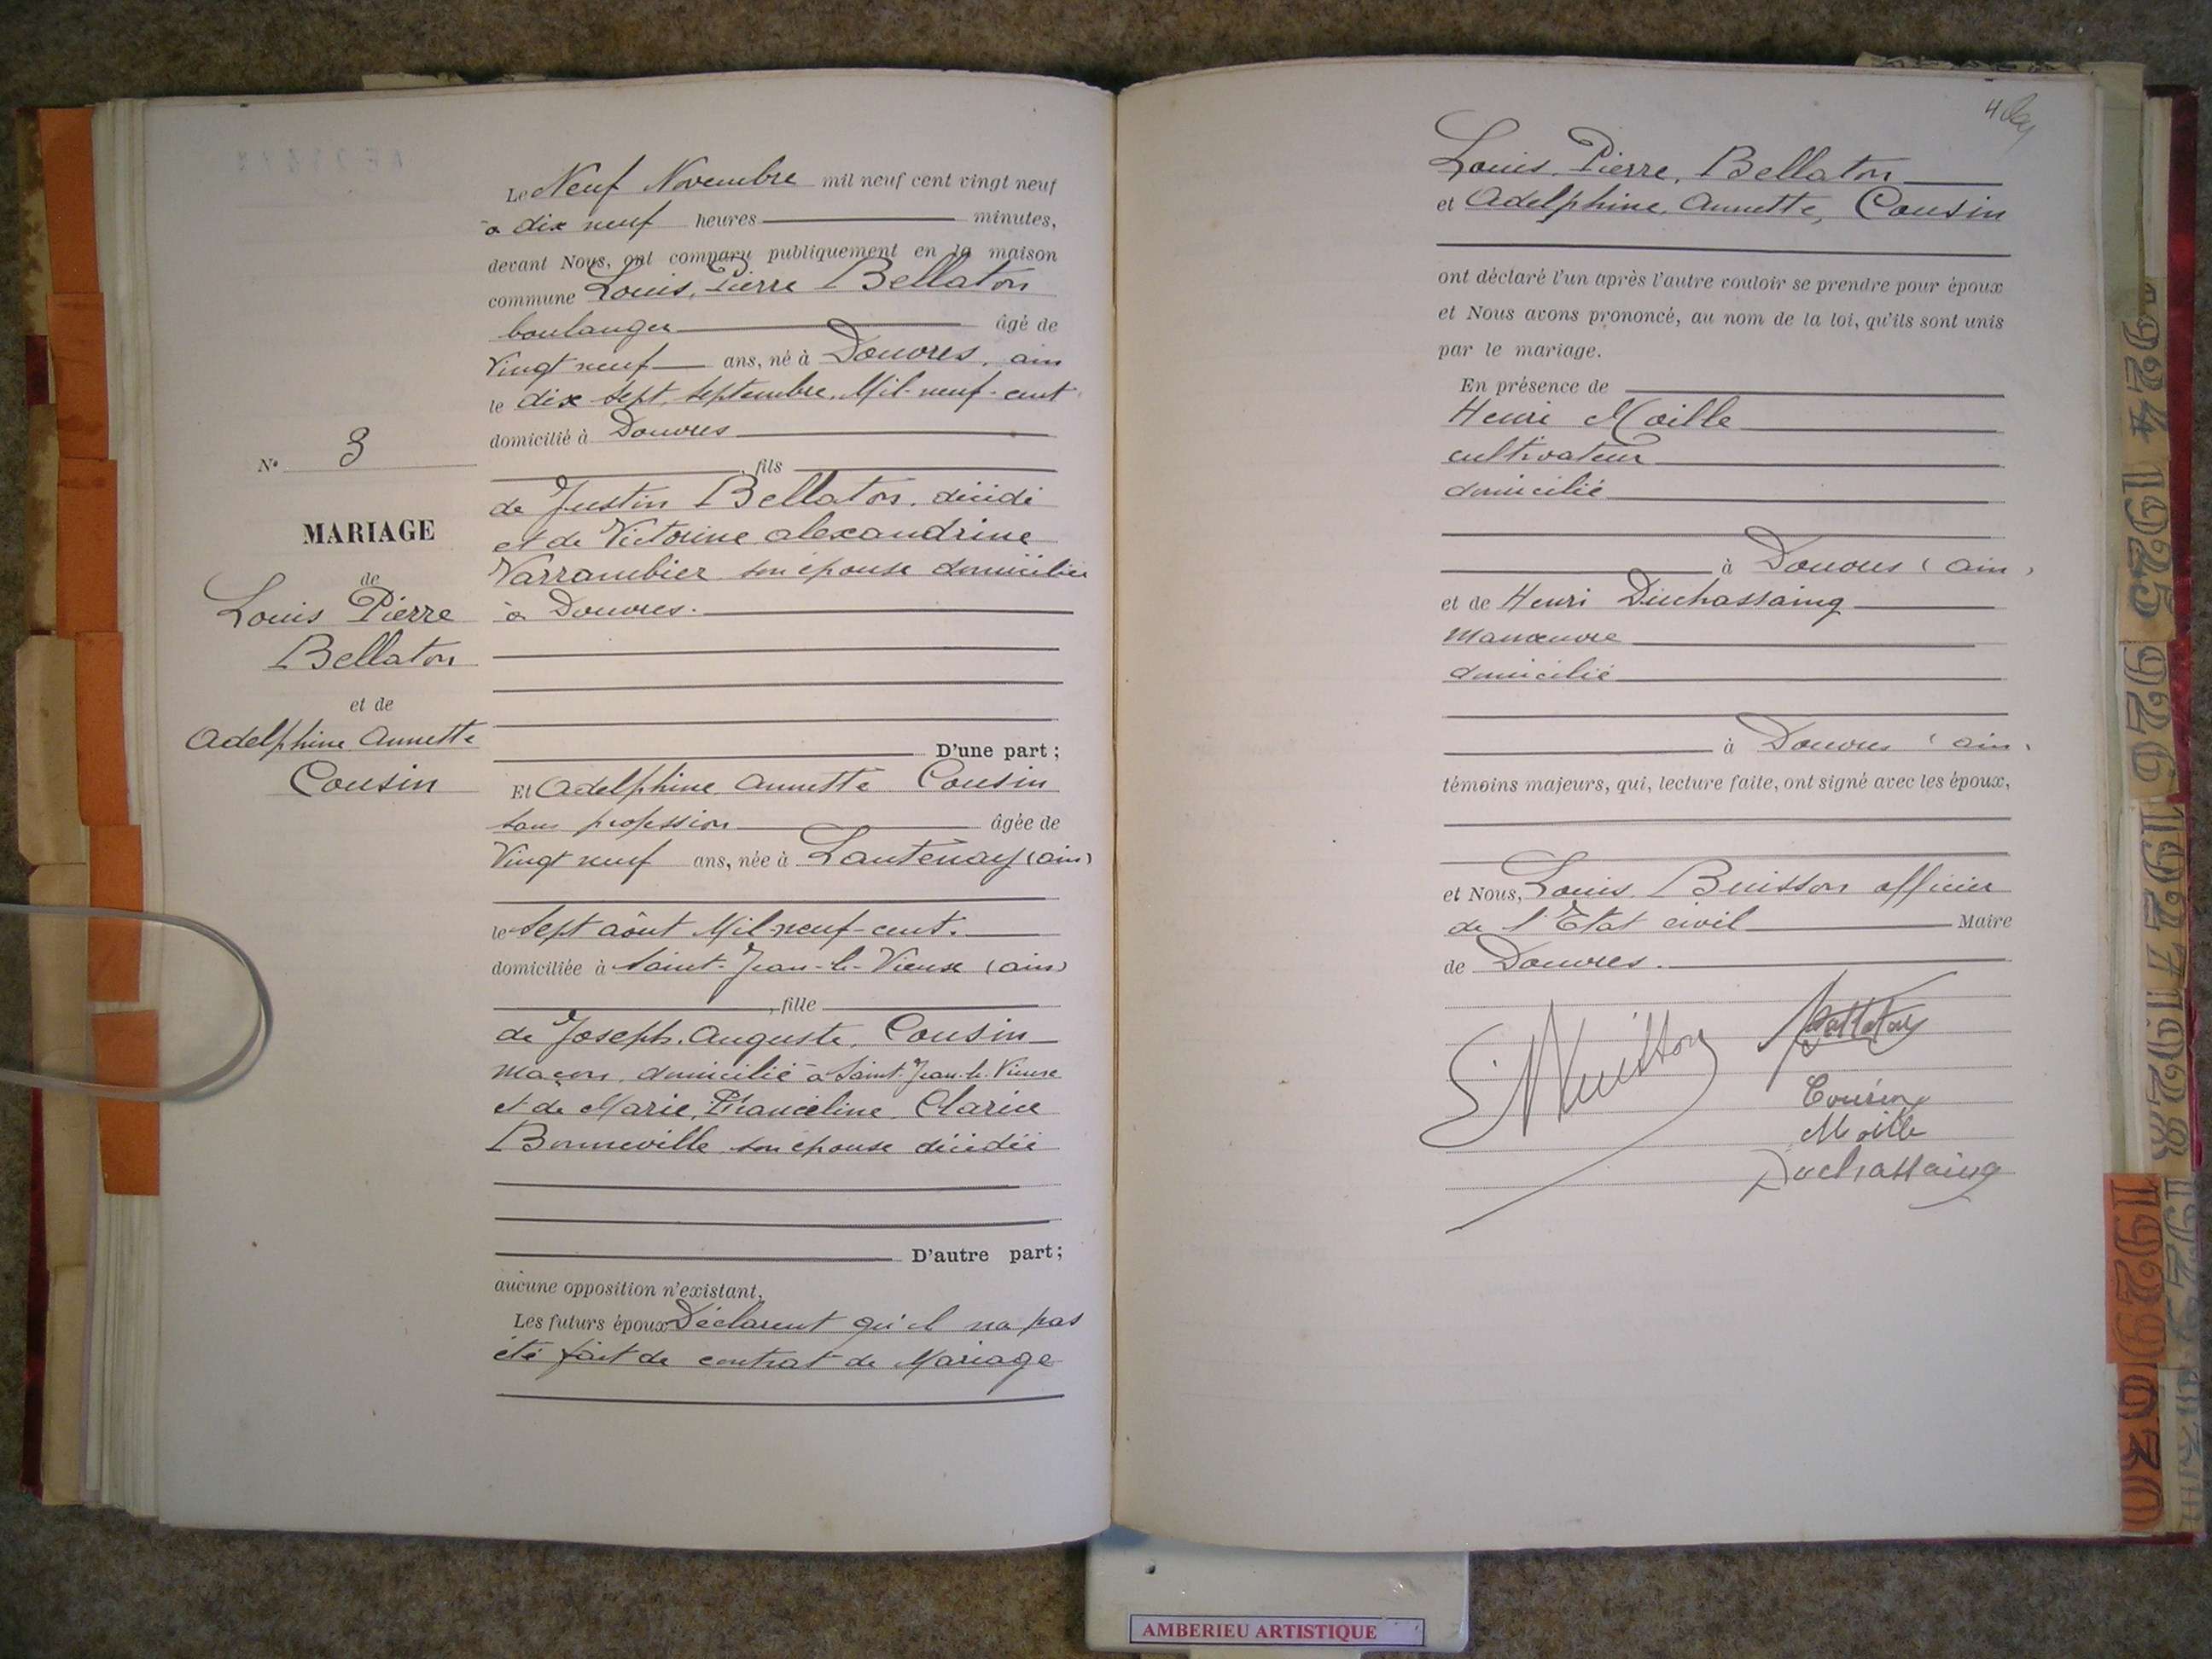 Le Neuf Novembre mil neuf cent vingt neuf
à dix neuf heures minutes,
devant Nous, ont comparu publiquement en la maison
commune Louis, Pierre Bellaton
boulanger âgé de
Vingt neuf ans, né à Douvres, ain
le dix sept, septembre, Mil-neuf-cent
domicilié à Douvres
fils
de Justin Bellaton, décédé
et de Victorine alexandrine
Varrambier son épouse domiciliée
à Douvres.
D'une part;
Et Adelphine, annette Cousin
sans profession âgée de
Vingt neuf ans, née à Lantenay (ain)
le Sept août Mil neuf-cent.
domiciliée à Saint-Jean-le-Vieux (ain)
, fille
de Joseph, Auguste, Cousin
maçon, domicilié à Saint-Jean-le-Vieux
et de Marie, Franceline, Clarice
Bonneville son épouse décédée
D'autre part;
aucune opposition n'existant,
Les futurs époux Déclarent qu'il na pas
été fait de contrat de Mariage
N° 3
MARIAGE
de
Louis Pierre
Bellaton
et de
Adelphine Annette
Cousin
4
Louis, Pierre, Bellaton
et Adelphine, Annette, Cousin
ont déclaré l'un après l'autre vouloir se prendre pour époux
et Nous avons prononcé, au nom de la loi, qu'ils sont unis
par le mariage.
En présence de
Henri Moille
cultivateur
domicilié
à Douvres (ain)
et de Henri Duchassaing
manœuvre
domicilié
à Douvres (ain)
témoins majeurs, qui, lecture faite, ont signé avec les époux,
et Nous, Louis Buisson officier
de l'Etat civil Maire
de Douvres.
Bellaton
Cousin
Moille
Duchassaing
1924
1925
1926
1927
1928
1929
1930
AMBERIEU ARTISTIQUE